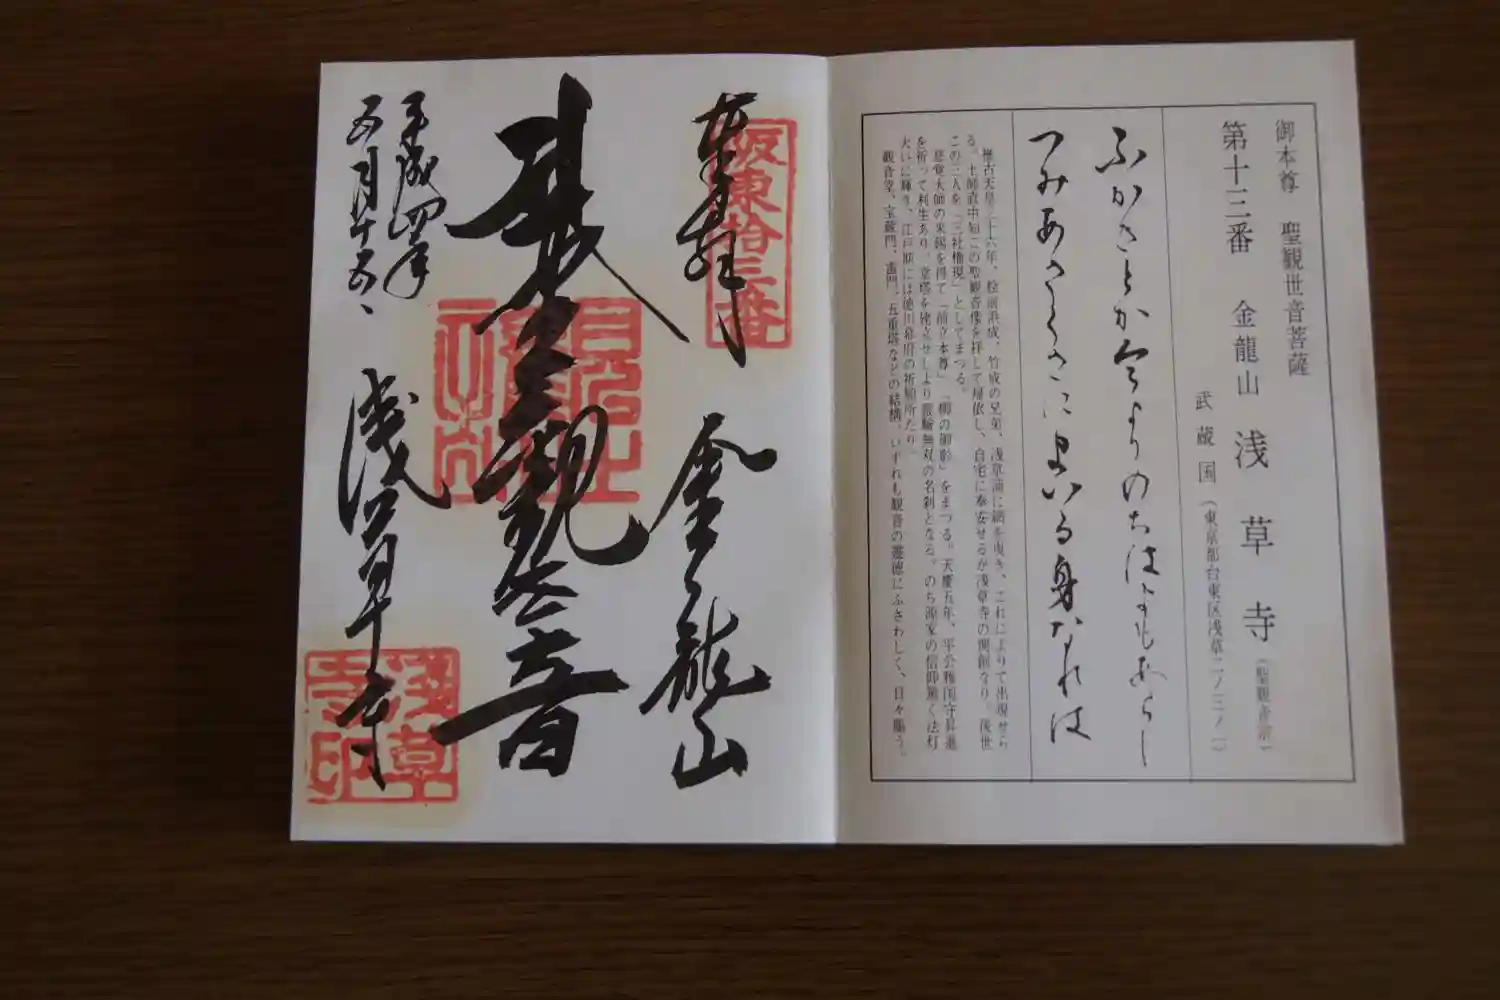 御本尊 聖観世音菩薩
第十三番 金龍山 浅草寺（聖観音宗）
武蔵国（東京都台東区浅草二ノ三ノ一）
ふかきとが今よりのちはよもあらじ
つみあさくさにまいる身なれば
推古天皇三十六年、桧前浜成、竹成の兄弟、浅草浦に網を曳き、これによりて出現せら
る。土師直中知この聖観音像を拝して帰依し、自宅に奉安せるが浅草寺の開創なり。後世
この三人を「三社権現」としてまつる。
慈覚大師の来錫を得て「前立本尊」「柳の御影」をまつる。天慶五年、平公雅国守昇進
を祈って利生あり、堂塔を建立せしより荘厳無双の名刹となる。のち源家の信仰篤く法灯
大いに輝き、江戸期には徳川幕府の祈願所たり。
観音堂、宝蔵門、雷門、五重塔などの結構、いずれも観音の霊徳にふさわしく、日々賑う。
奉拝
坂東拾三番
金龍山
聖観世音
平成四年
五月十五日
浅草寺
浅草寺印